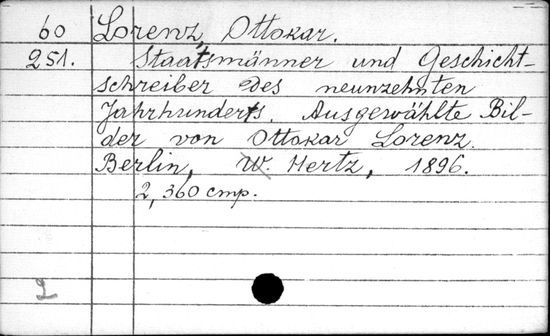 60 Lorenz, Ottokar.
251. Staatsmänner und Geschicht-
schreiber des neunzehnten
Jahrhunderts. Ausgewählte Bil-
der von Ottokar Lorenz.
Berlin, W. Hertz, 1896.
2, 360 стр.